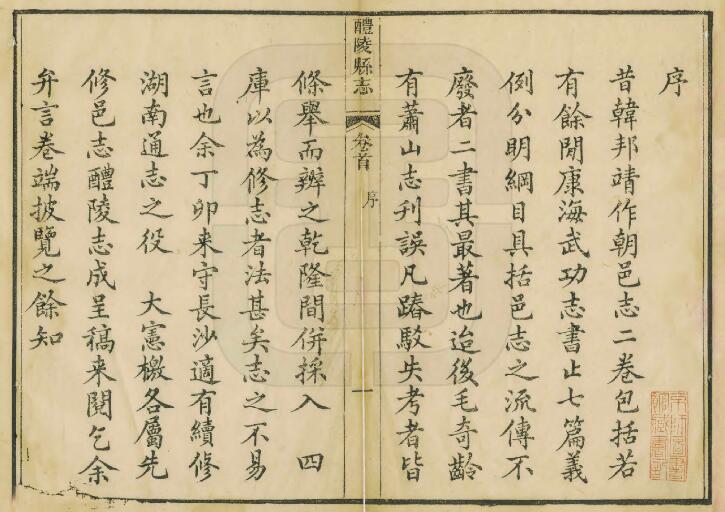 序
昔韓邦靖作朝邑志二卷包括若
有餘閒康海武功志書止七篇義
例分明綱目具括邑志之流傳不
廢者二書其最著也迨後毛奇齡
有蕭山志刊誤凡踳駁失考者皆
醴陵縣志
卷首
序
一
條舉而辨之乾隆間併採入 四
庫以為修志者法甚矣志之不易
言也余丁卯来守長沙適有續修
湖南通志之役 大憲檄各屬先
修邑志醴陵志成呈稿来閱乞余
弁言卷端披覽之餘知